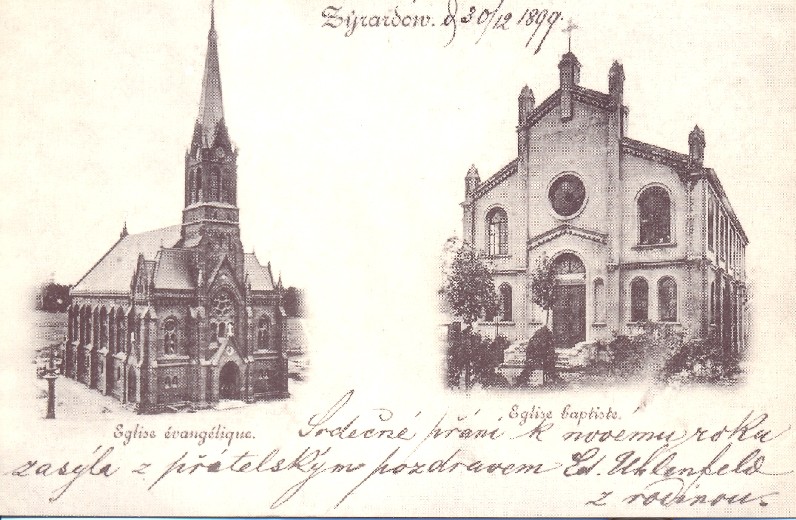 Żyrardów. d 30/12 1899.
Eglise baptiste.
Eglise évangélique.
Srdečné přání k novému roku
zasýla z přátelským pozdravem Ed. Uhlenfeld
z rodinou.